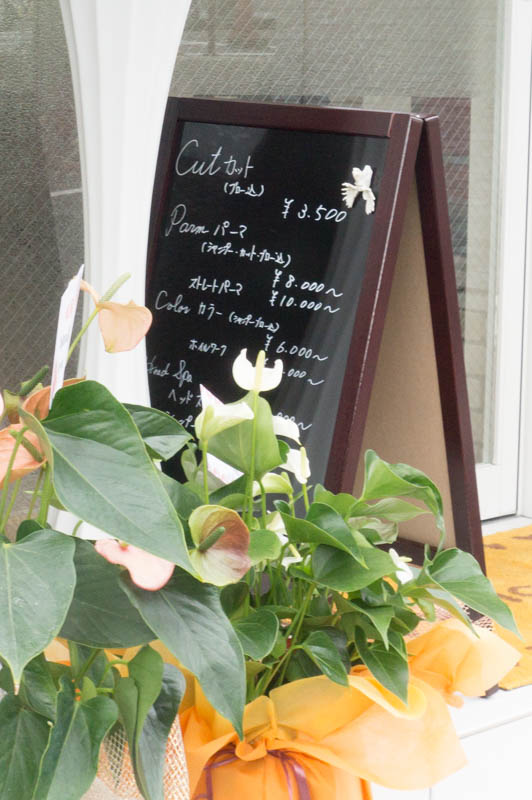 Cut カット
(ブロー込)
¥3.500
Parm パーマ
(シャンプー・カット・ブロー込)
¥8.000〜
ストレートパーマ ¥10.000〜
Color カラー (シャンプーブロー込)
¥6.000〜
ホイルワーク .000〜
Head Spa
ヘッド
.000〜